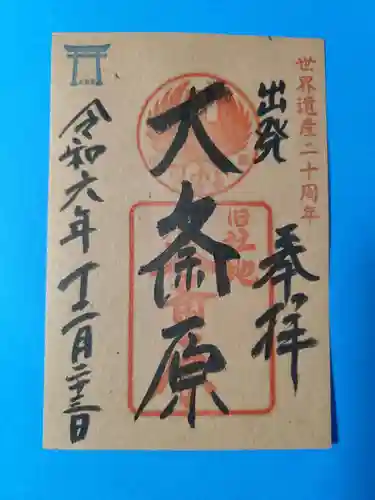 世界遺産二十周年
出発
奉拝
大斎原
旧社地
令和六年十二月二十三日